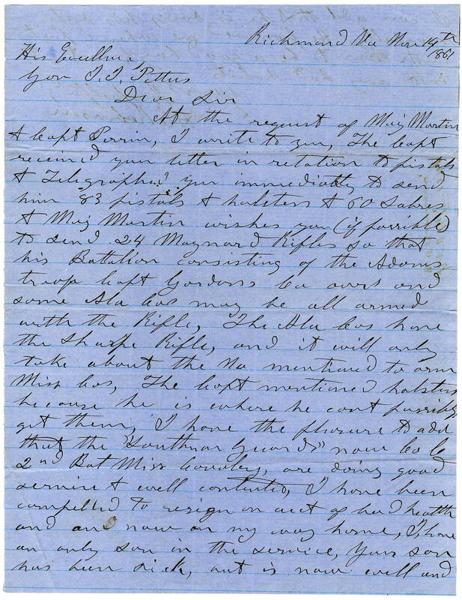 Richmond Va Nov 19th
1861
His Excellency
Gov J. J. Pettus
Dear Sir
At the request of Maj Martin
& Capt Perrin, I write to you, The Capt
received your letter in relation to pistols
& Telegraphed you immediately to send
him 83 pistols & holsters & 60 Sabres
& Maj Martin wishes you (if possible)
to send 24 Maynard Rifles so that
his Battalion consisting of the Adams
troop Capt Gordons Co ours and
some Ala Cos may be all armed
with the Rifle, The Ala Cos have
the Sharpe Rifle, and it will only
take about the No mentioned to arm
Miss Cos, The Capt mentioned holsters
because he is where he cant possibly
get them, I have the pleasure to add
that the "Southron Guards" now Co
2nd Bat Miss Cavalry, are doing good
service & well contented, I have been
compelled to resign on act of bad health
and am now on my way home, I have
an only son in the service, Your son
has been sick, but is now well and